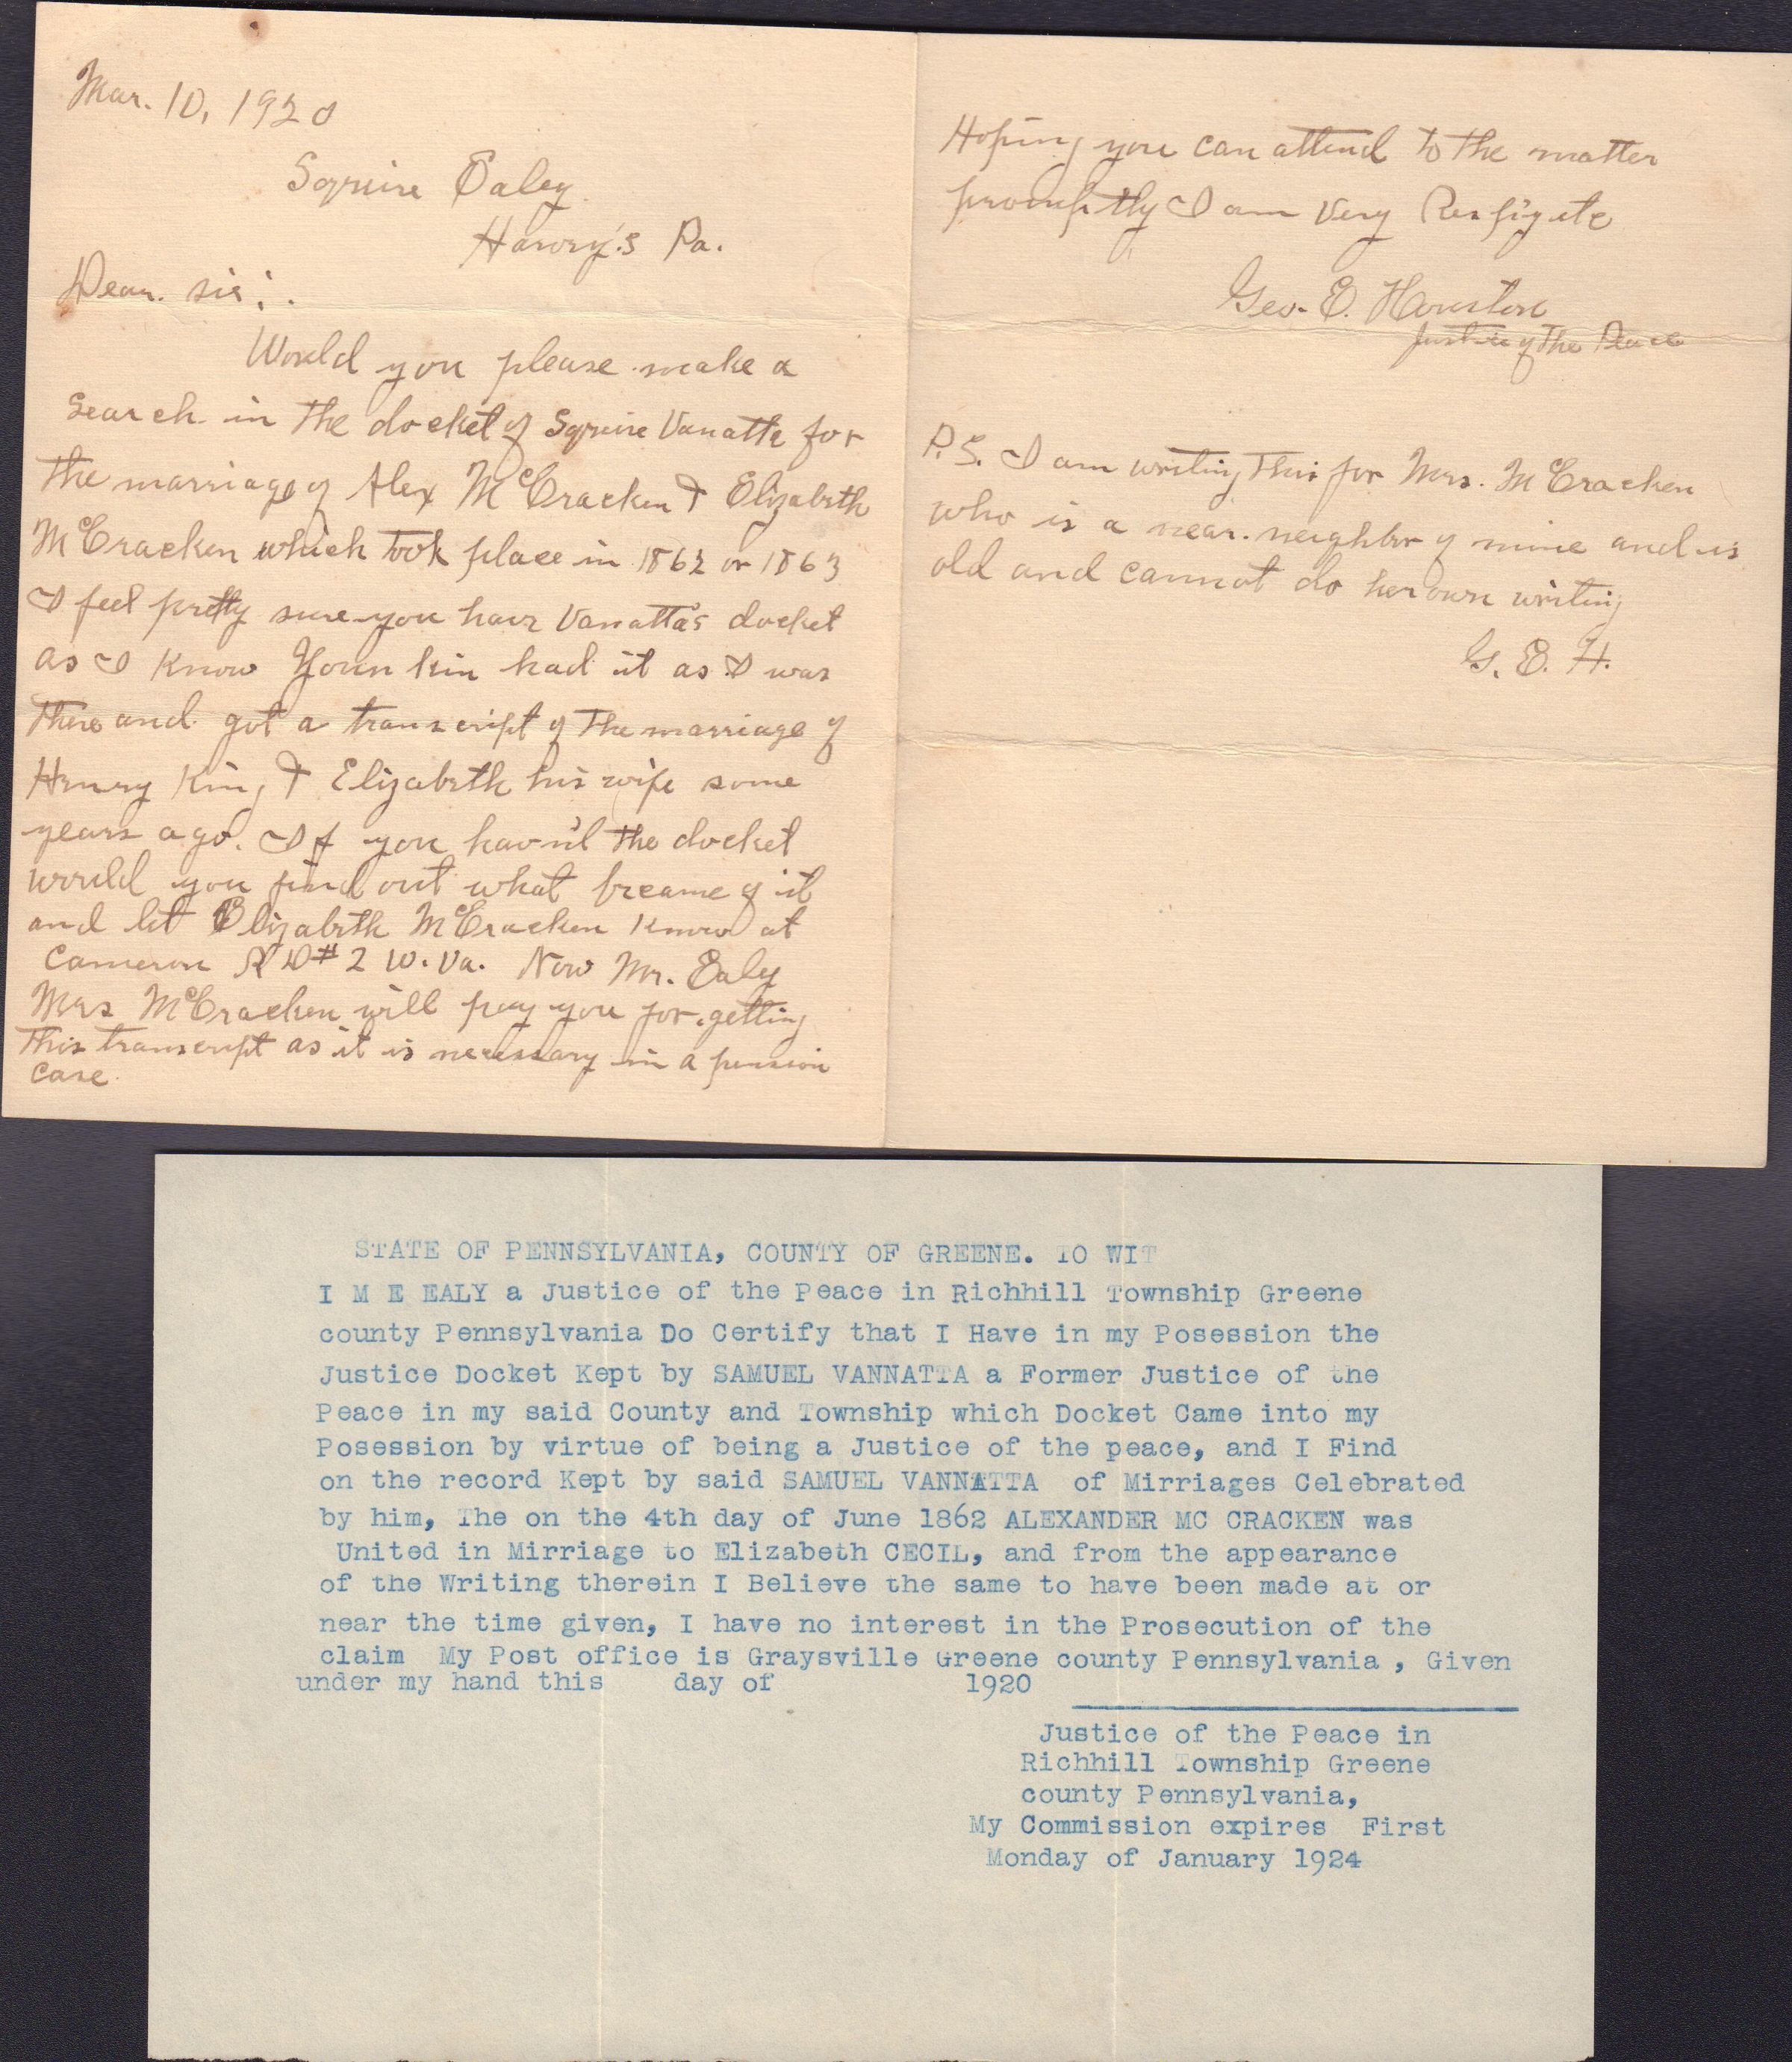 Mar. 10, 1920
Squire Ealey
Harvey's Pa.
Dear. sir; .
Would you please make a
search in the docket of Squire Vanatta for
the marriage of Alex McCracken & Elizabeth
McCracken which took place in 1862 or 1863
I feel pretty sure you have Vanatta's docket
as I know Younkin had it as I was
there and got a transcript of the marriage of
Henry King & Elizabeth his wife some
years ago. If you havn't the docket
would you find out what became of it
and let Elizabeth McCracken know at
Cameron R D # 2 W. Va. Now Mr. Ealy
Mrs McCracken will pay you for getting
this transcript as it is necessary in a pension
case.
Hoping you can attend to the matter
promptly I am Very
Geo. E. Houston
Justice of the Peace
P.S. I am writing this for Mrs. McCracken
who is a near neighbor of mine and is
old and cannot do her own writing
G. E. H.
STATE OF PENNSYLVANIA, COUNTY OF GREENE. TO WIT
I M E EALY a Justice of the Peace in Richhill Township Greene
county Pennsylvania Do Certify that I Have in my Posession the
Justice Docket Kept by SAMUEL VANNATTA a Former Justice of the
Peace in my said County and Township which Docket Came into my
Posession by virtue of being a Justice of the peace, and I Find
on the record Kept by said SAMUEL VANNATTA of Mirriages Celebrated
by him, The on the 4th day of June 1862 ALEXANDER MC CRACKEN was
United in Mirriage to Elizabeth CECIL, and from the appearance
of the Writing therein I Believe the same to have been made at or
near the time given, I have no interest in the Prosecution of the
claim My Post office is Graysville Greene county Pennsylvania , Given
under my hand this day of 1920
Justice of the Peace in
Richhill Township Greene
county Pennsylvania,
My Commission expires First
Monday of January 1924